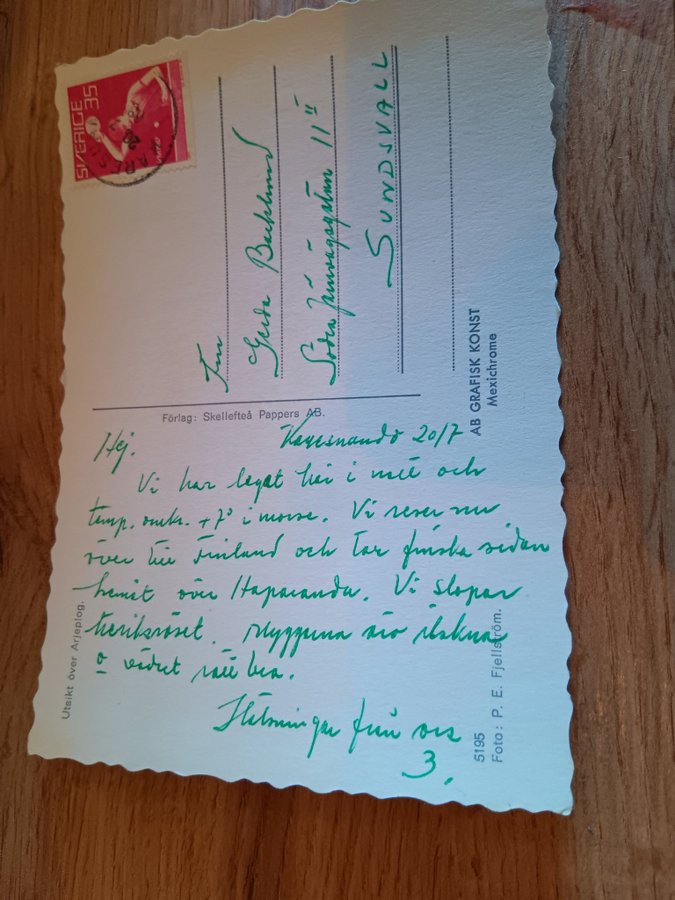 Hej.
Karesuando 20/7
Vi har legat här i natt och
temp. omkr. +7° i morse. Vi reser nu
över till Finland och tar finska sidan
hemåt över Haparanda. Vi slopar
treriksröset. Myggorna äro ilskna
o vädret rätt bra.
Hälsningar från oss
3.
Utsikt över Arjeplog.
Förlag: Skellefteå Pappers AB.
5195
Foto: P. E. Fjellström.
AB GRAFISK KONST
Mexichrome
SVERIGE 35
Fru
Gerda Backlund
Södra Järnvägsgatan 11 II
SUNDSVALL